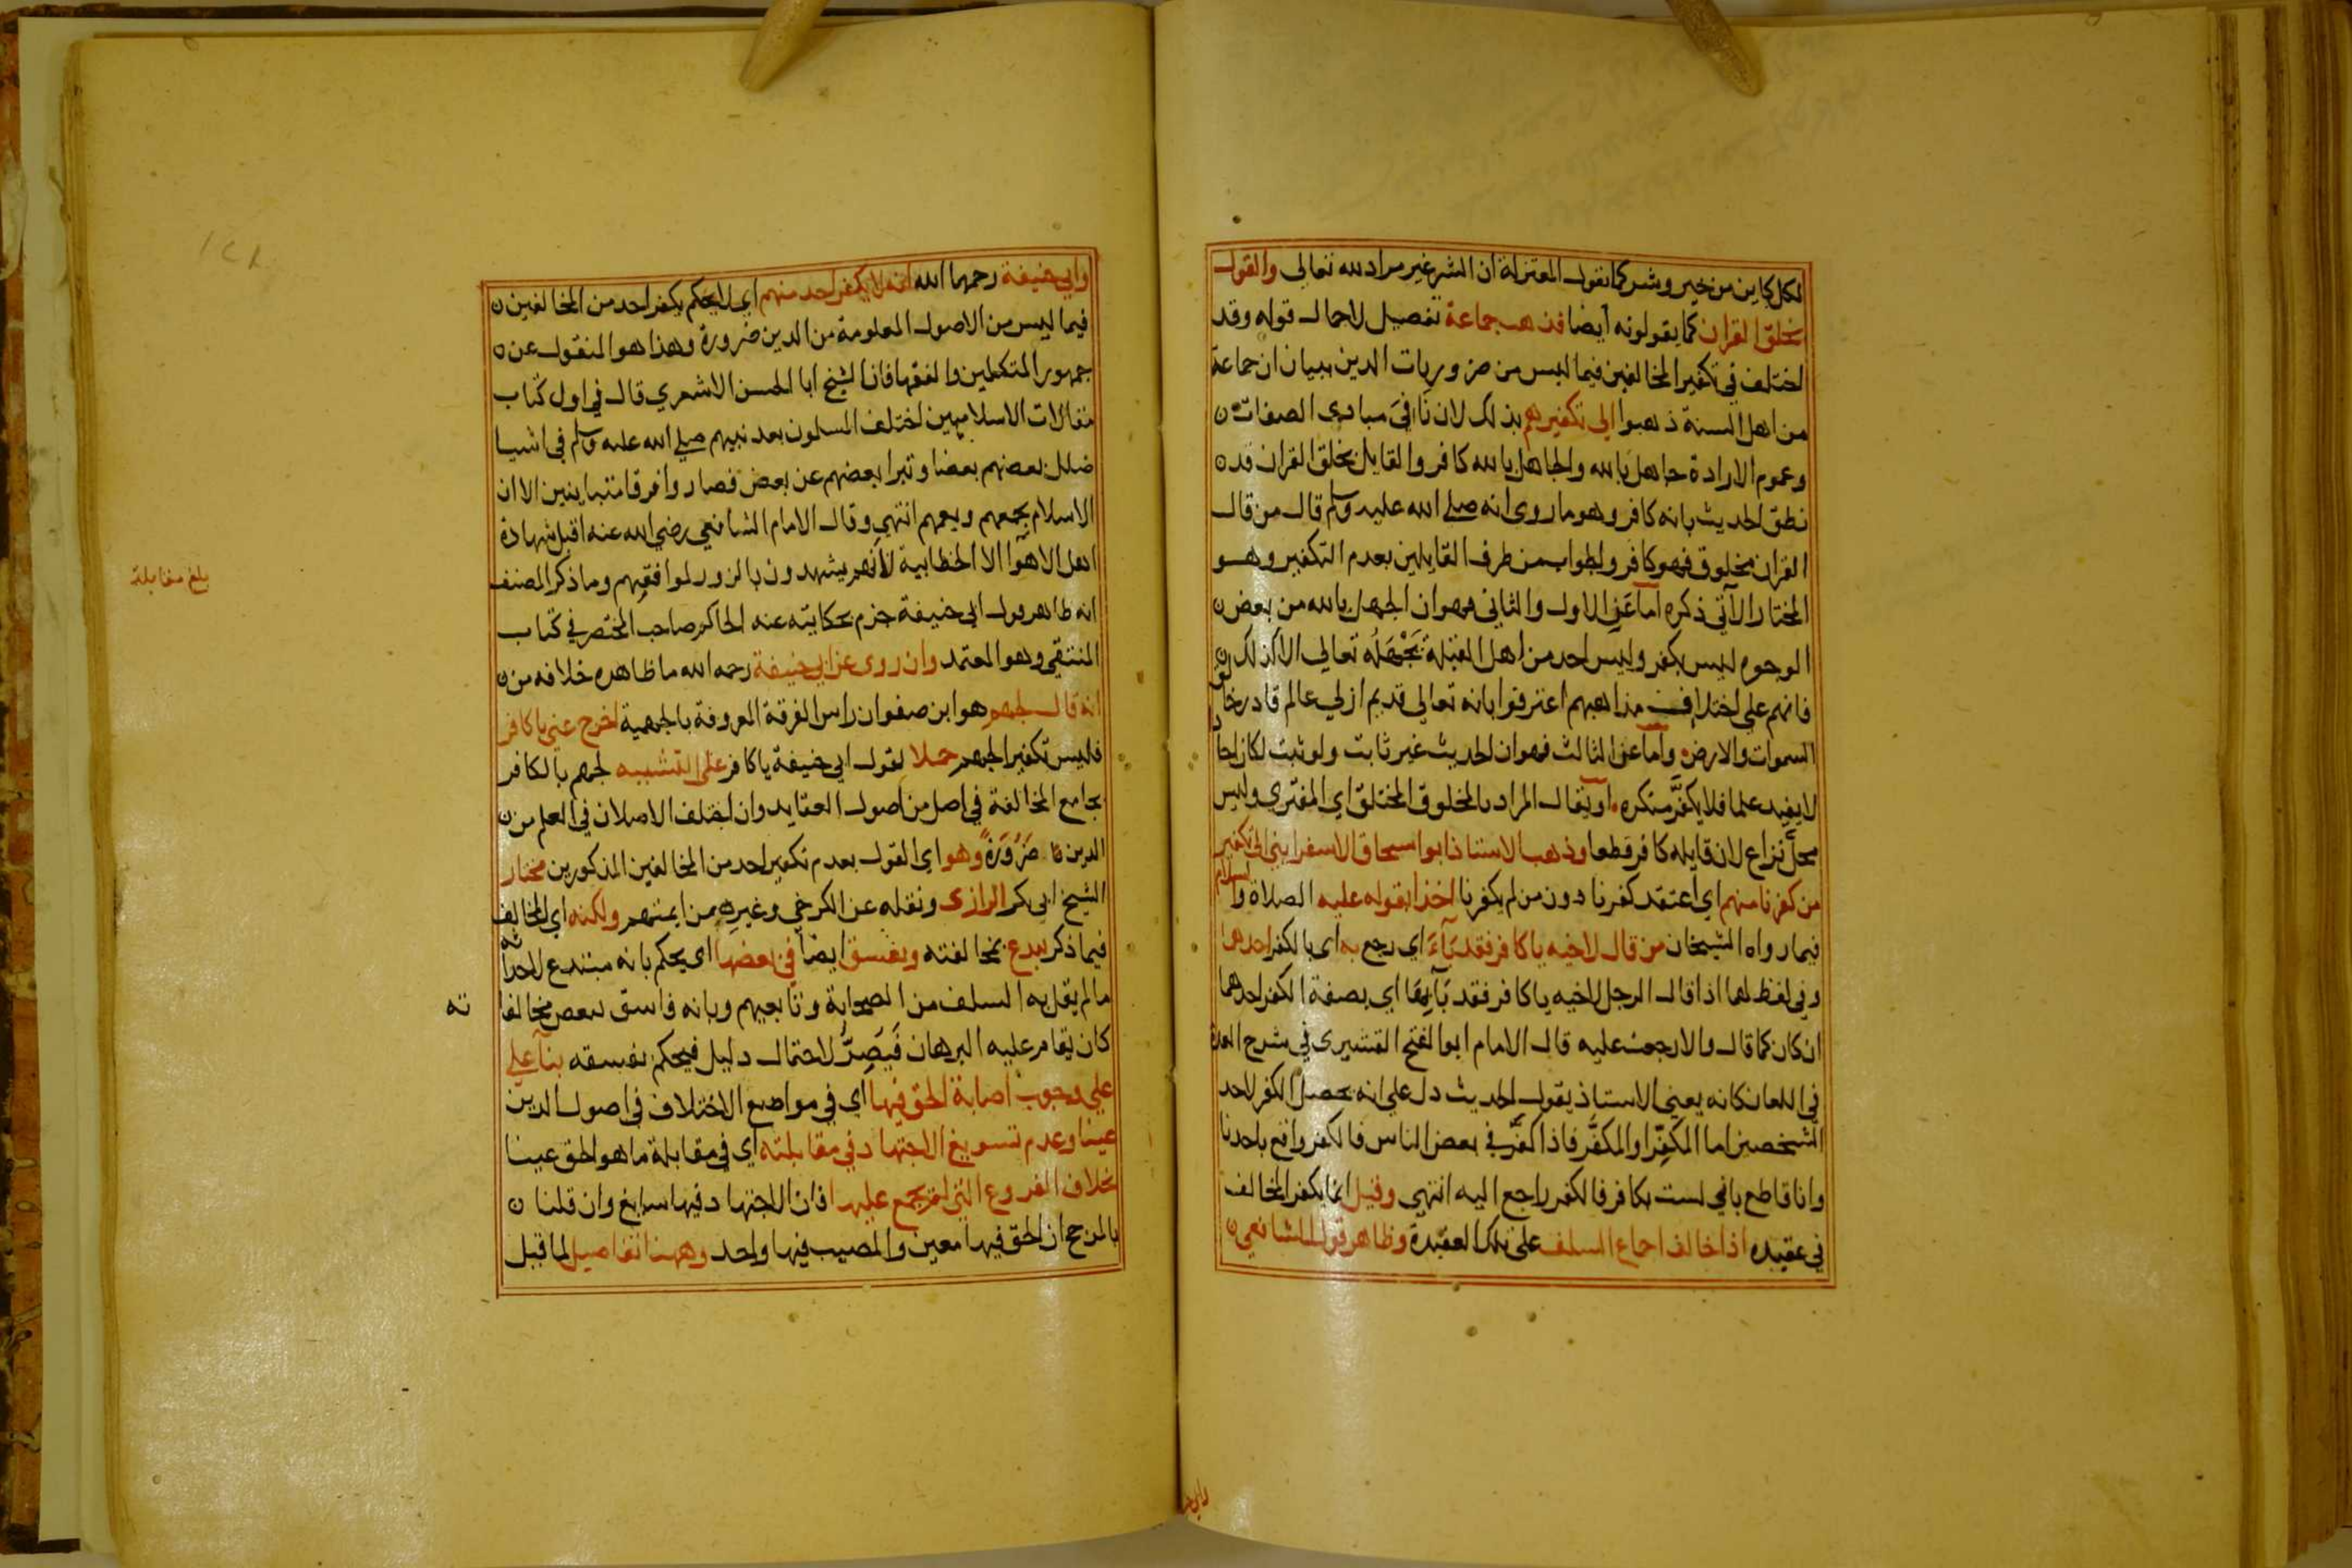 لكل كاين من خير وشر كما تقول المعتزلة ان الشر غير مراد لله تعالى والقول
بخلق القران كما يقولونه ايضا فذهب جماعة تفصيل لاجمال قوله وقد
اختلف في تكفير المخالفين فيما ليس من ضروريات الدين ببيان ان جماعة
من اهل السنة ذهبوا الى تكفيرهم بذلك لان نافي مبادى الصفات
وعموم الارادة جاهل بالله والجاهل بالله كافر والقايل بخلق القران قد
نطق الحديث بانه كافر وهو ما روى انه صلى الله عليه وسلم قال من قال
القران مخلوق فهو كافر والجواب من طرف القايلين بعدم التكفير وهو
المختار الآتي ذكره اما عن الاول والثاني فهو ان الجهل بالله من بعض
الوجوه ليس بكفر وليس احد من اهل القبلة يَجْهَلُه تعالى الا كذلك
فانهم على اختلاف مذاهبهم اعترفوا بانه تعالى قديم ازلي عالم قادر خالق
السموات والارض واما عن الثالث فهو ان الحديث غير ثابت ولو ثبت لكان احاد
لا يفيد علما فلا يكفَّر منكره او يقال المراد بالمخلوق المختلق اي المفترى وليس
محلَّ نزاع لان قايله كافر قطعا وذهب الاستاذ ابو اسحاق الاسفرايني الى تكفير
من كفرنا منهم اي اعتقد كفرنا دون من لم يكفرنا اخذا بقوله عليه الصلاة والسلام
فيما رواه الشيخان من قال لاخيه ياكافر فقد بَآءَ اي رجع به اى بالكفر احدهما
وفي لفظ لهما اذا قال الرجل لاخيه ياكافر فقد بَآءَ بِهَا اي بصفة الكفر احدهما
ان كان كما قال والا رجعت عليه قال الامام ابو الفتح القشيرى في شرح العمدة
في اللعان كانه يعني الاستاذ يقول الحديث دل على انه يحصل الكفر لاحد
الشخصين اما المكفِّر او المكفَّر فاذا كفَّر في بعض الناس فالكفر واقع باحدنا
وانا قاطع باني لست بكافر فالكفر راجع اليه انتهى وقيل انما يكفر المخالف
في عقيدة اذا خالف اجماع السلف على تلك العقيدة وظاهر قول الشافعي
وابي حنيفة رحمهما الله انه لا يكفر احد منهم اي لا يحكم بكفر احد من المخالفين
فيما ليس من الاصول المعلومة من الدين ضرورة وهذا هو المنقول عن
جمهور المتكلمين والفقها فان الشيخ ابا الحسن الاشعري قال في اول كتاب
مقالات الاسلاميين اختلف المسلمون بعد نبيهم صلى الله عليه وسلم في اشيا
ضلل بعضهم بعضا وتبرا بعضهم عن بعض فصاروا فرقا متباينين الا ان
الاسلام يجمعهم ويعمهم انتهى وقال الامام الشافعي رضي الله عنه اقبل شهادة
اهل الاهوآ الا الخطابية لأنهم يشهدون بالزور لموافقهم وما ذكر المصنف
انه ظاهر قول ابى حنيفة جزم بحكايته عنه الحاكم صاحب المختصر في كتاب
المنتقى وهو المعتمد وان روى عن ابى حنيفة رحمه الله ما ظاهره خلافه من
انه قال لجهم هو ابن صفوان راس الفرقة المعروفة بالجهمية اخرج عني ياكافر
فليس تكفير الجهم حملا لقول ابي حنيفة ياكافر على التشبيه لجهم بالكافر
بجامع المخالفة في اصل من اصول العقايد وان اختلف الاصلان في العلم من
الدين ضَرُوْرَةً وهو اي القول بعدم تكفير احد من المخالفين المذكورين مختار
الشيخ ابى بكر الرازى ونقله عن الكرخي وغيره من ايمتهم ولكنه اي المخالف
فيما ذكر يبدع بمخالفته ويفسق ايضا في بعضها اى يحكم بانه مبتدع لاحداثه
ما لم يقل به السلف من الصحابة وتابعيهم وبانه فاسق لبعض مخالفا
ته
كان يقام عليه البرهان فَيُصِرُّ لاحتمال دليل فيحكم بفسقه بنآ على
على وجوب اصابة الحق فيها اي في مواضع الاختلاف في اصول الدين
عينا وعدم تسويغ الاجتهاد في مقابلته اي في مقابلة ما هو الحق عينا
بخلاف الفروع التي لم يجمع عليها فان الاجتهاد فيها سايغ وان قلنا
بالمرجح ان الحق فيها معين والمصيب فيها واحد وههنا تفاصيل لما قبل
بلغ مقابلة